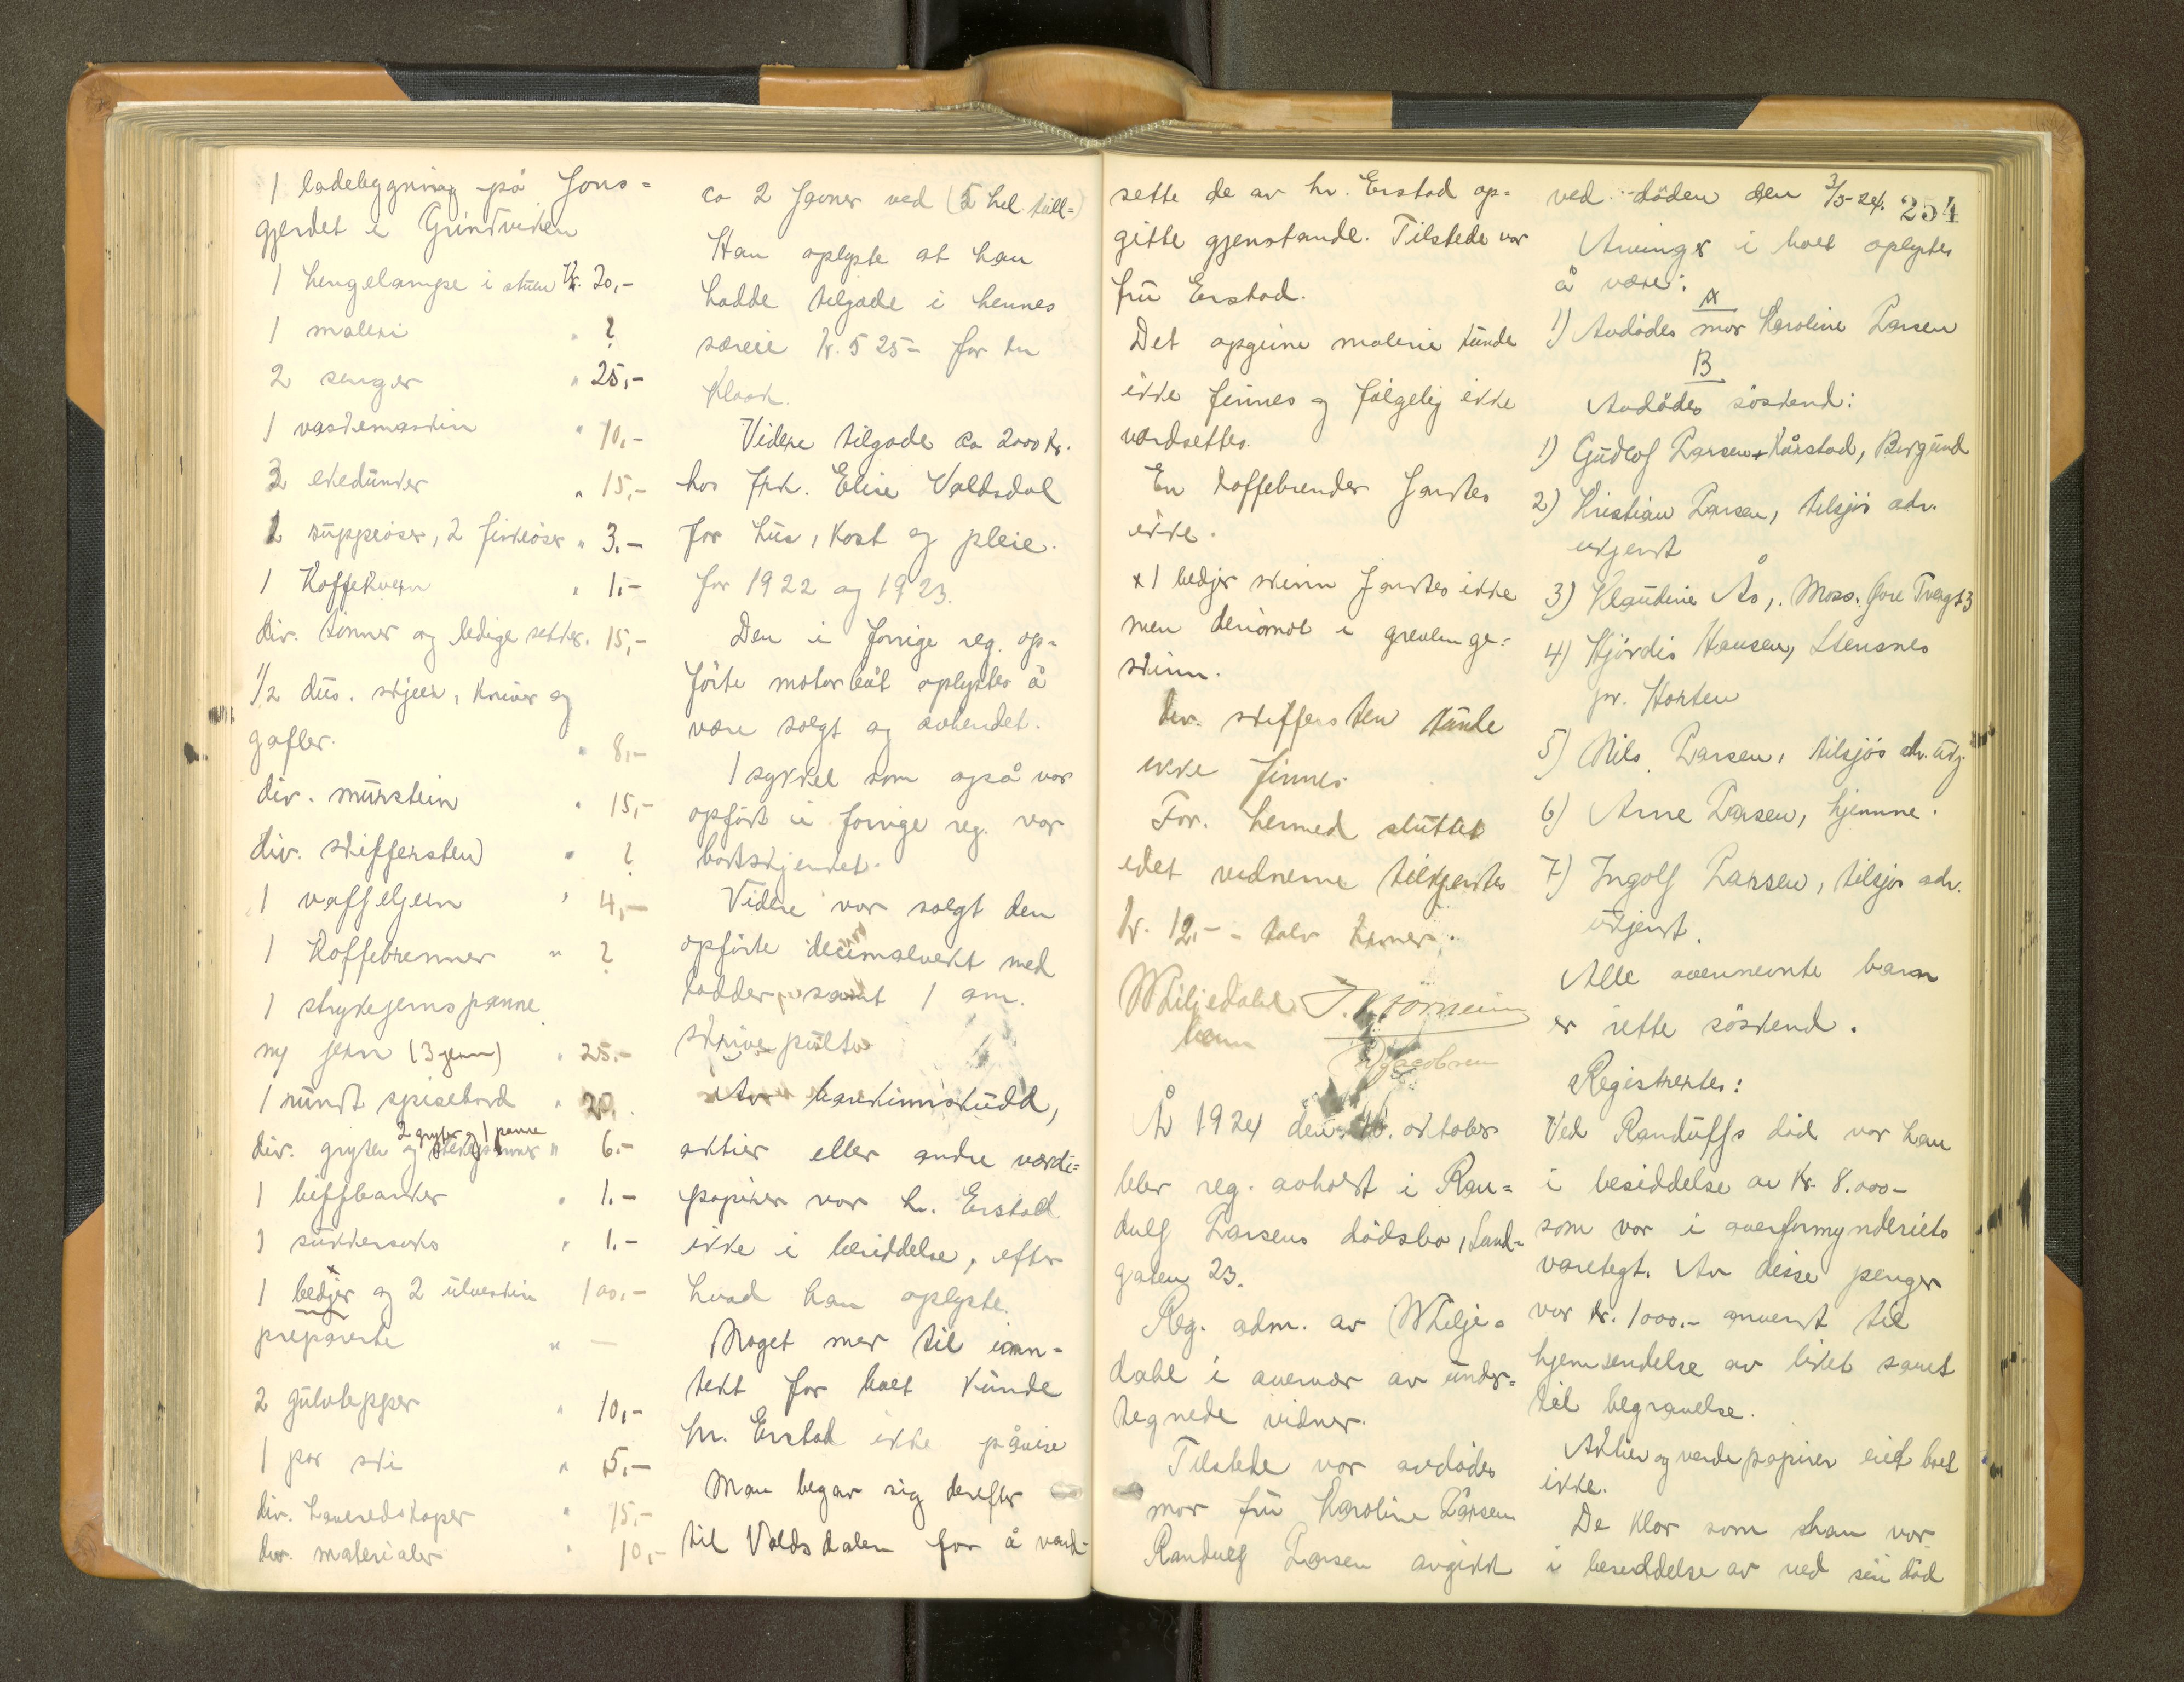 1 ladebygning på Jons=
gjerdet i Grindviken
1 hengelampe i stuen Kr. 20,-
1 maleri " ?
2 senger " 25,-
1 vaskemaskin " 10,-
3 ekedunker " 15,-
1 suppeöser, 2 fiskeöser " 3.-
1 Kaffekvern " 1.-
div. tönner og ledige sekker. 15,-
1/2 dus. skjeer, kniver og
gafler. " 8,-
div. murstein " 15,-
div. skiffersten " ?
1 vaffeljern " 4,-
1 Kaffebrenner " ?
1 strykejernspanne
m/ jern (3 jern) " 25.-
1 rundt spisebord " 20.
2 gryter og 1 panne
div. gryter og stekepanner " 6.-
1 biffbanker " 1.-
1 sukkersaks " 1.-
1 bedjer og 2 ulveskin 100.-
preparerte " —
2 gulvtepper " 10,-
1 par ski " 5.-
div. haveredskaper " 15,-
div. materialer " 10,-
ca 2 favner ved (5 hel. tull=)
Han oplyste at han
hadde tilgode i hennes
særeie kr. 525- for en
kloak.
Videre tilgode ca 2000 kr.
hos frk. Elise Valdsdal
for hus, kost og pleie.
for 1922 og 1923.
Den i forrige reg. op=
förte motorbåt oplystes å
være solgt og avhendet.
1 sykkel som også var
opfört i forrige reg. var
bortskjenket.
Videre var solgt den
opförte decimalvekt med
lodder samt 1 am.
skrivepult
Av bankinnskudd,
aktier eller andre verdi=
papirer var hr. Erstad
ikke i besiddelse, efter
hvad han oplyste.
Noget mer til inn=
tekt for boet kunde
hr. Erstad ikke påvise
Man begav sig derefter
til Valdsdalen for å verd-
sette de av hr. Erstad op=
gitte gjenstande. Tilstede var
fru Erstad.
Det opgivne maleri kunde
ikke finnes og fölgelig ikke
verdsettes.
En kaffebrender fantes
ikke.
x 1 bedjer skinn fantes ikke
men derimot i grevlinge=
skinn.
Div. skiffersten kunde
ikke finnes.
For. hermed sluttet
idet vidnerne tilkjentes
kr. 12.- - tolv kroner.
W Liljedahl
J. Kjörneim
Jacobsen
År 1924 den 16. oktober
blev reg. avholdt i Ran=
dulf Larsens dödsbo, Land=
gaten 23.
Reg. adm. av W Lilje=
dahl i overvær av under=
tegnede vidner.
Tilstede var avdödes
mor fru Karoline Larsen
Randulf Larsen avgikk
ved döden den 3/5-24. 254
Arvinger i boet oplystes
å være:
A
1) Avdödes mor Karoline Larsen
B
Avdödes söskend:
1) Gudlof Larsen, Kårstad, Borgund
2) Kristian Larsen, tilsjös adr.
ukjent
3) Klaudine Ås, Moss. Övre Tvergt 3
4) Hjördis Hansen, Stensnes
pr. Horten
5) Nils Larsen, tilsjös adr. ukj.
6) Arne Larsen, hjemme.
7) Ingolf Larsen, tilsjös adr.
ukjent.
Alle ovennevnte barn
er rette söskend.
Registrertes:
Ved Randulfs död var han
i besiddelse av Kr. 8.000-
som var i overformynderiets
varetegt. Av disse penger
var kr. 1000.- anvent til
hjemsendelse av liket samt
til begravelse.
Aktier og verdipapirer eiet boet
ikke.
De klær som han var
i besiddelse av ved sin död